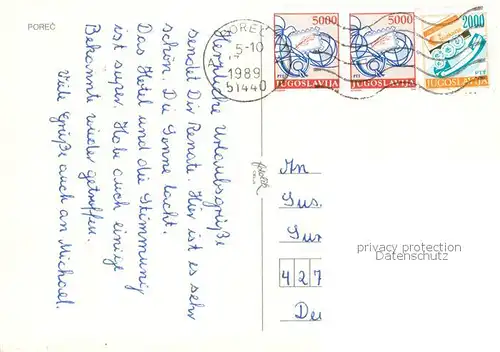 POREČ
Herzliche Urlaubsgrüße
sendet Dir Renate. Hier ist es sehr
schön. Die Sonne lacht.
Das Hotel und die Stimmung
ist super. Habe auch einige
Bekannte wieder getroffen.
Viele Grüße auch an Michael.
POREČ
5-10
1989
51440
5000
PTT
JUGOSLAVIJA
5000
PTT
JUGOSLAVIJA
2000
PTT
JUGOSLAVIJA
An
Sus
Sur
427
De
privacy protection
Datenschutz